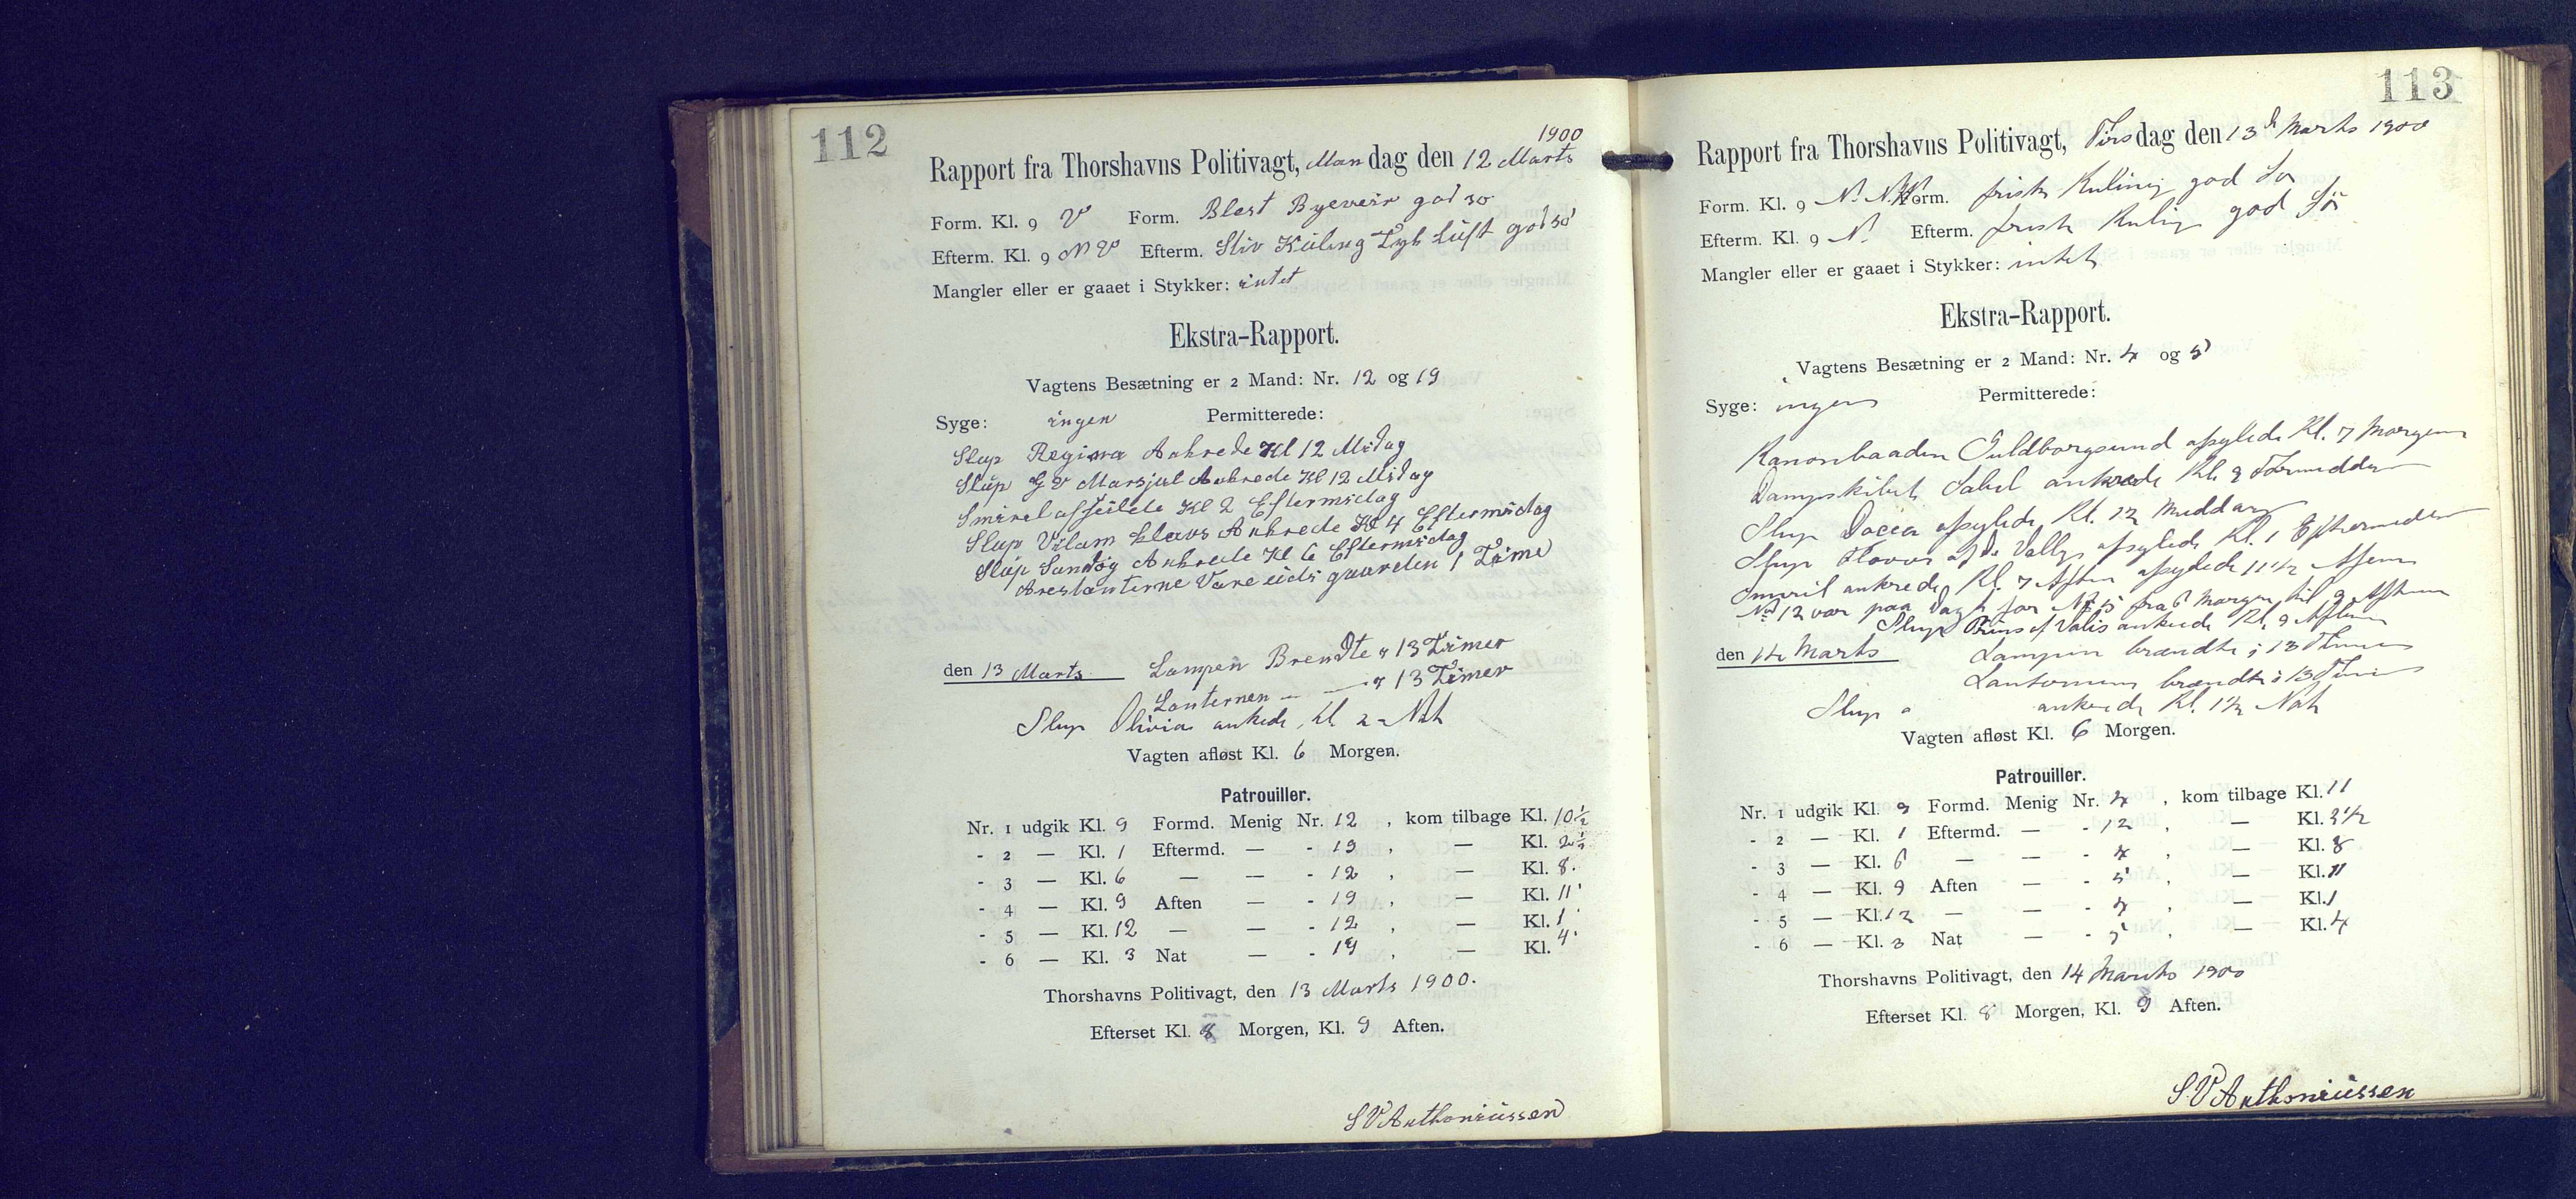 112
1900
Rapport fra Thorshavns Politivagt, Mandag den 12 Marts
Form. Kl. 9 V Form. Blest Byeveir god so
Efterm. Kl. 9 NV Efterm. Stiv Kuling Tyk Luft god so
Mangler eller er gaaet i Stykker: intet
Ekstra-Rapport.
Vagtens Besætning er 2 Mand: Nr. 12 og 19
Syge: ingen Permitterede:
Slup Regina Ankrede Kl 12 Midag
Slup G V Marsjal Ankrede Kl 12 Midag
Smiril afseilde Kl 2 Eftermidag
Slup Vilam Klavs Ankrede Kl 4 Eftermidag
Slup Sandöy Ankrede Kl 6 Eftermidag
Arestanterne Vare uidi gaarden 1 Time
den 13 Marts Lampen Brendte i 13 Timer
Lanternen — — i 13 Timer
Slup Olivia ankede Kl 2 Nat
Vagten afløst Kl. 6 Morgen.
Patrouiller.
Nr. 1 udgik Kl. 9 Formd. Menig Nr. 12 , kom tilbage Kl. 10½
- 2 — Kl. 1 Eftermd. — - 19 , — Kl. 2½
- 3 — Kl. 6 — — - 12 , — Kl. 8.
- 4 — Kl. 9 Aften — - 19 , — Kl. 11
- 5 — Kl. 12 — — - 12 , — Kl. 1
- 6 — Kl. 3 Nat — - 19 , — Kl. 4
Thorshavns Politivagt, den 13 Marts 1900.
Efterset Kl. 8 Morgen, Kl. 9 Aften.
S V Anthoniussen
113
Rapport fra Thorshavns Politivagt, Tirsdag den 13d Marts 1900
Form. Kl. 9 N.N.W. Form. frisk Kuling god Sø
Efterm. Kl. 9 N. Efterm. frisk Kulig god Sö
Mangler eller er gaaet i Stykker: intet
Ekstra-Rapport.
Vagtens Besætning er 2 Mand: Nr. 4 og 5
Syge: ingen Permitterede:
Kanonbaaden Guldborgsund afsylede Kl. 7 Morgen
Dampskibet ankrede Kl. 9 Formidden
Slup afsylede Kl. 12 Middag
Slup afsylede Kl. 1 Eftermidden
Smiril ankrede Kl. 7 Aften afsylede 11½ Aften
No 12 var paa Vagt for No 5 fra 6 Morgen til 9 Aften
Slup Prins of Valis ankrede Kl. 9 Aften
den 14 Marts Lampen brændte i 13 Timer
Lanternen brændte i 13 Timer
Slup ankrede Kl. 1½ Nat
Vagten afløst Kl. 6 Morgen.
Patrouiller.
Nr. 1 udgik Kl. 9 Formd. Menig Nr. 4 , kom tilbage Kl. 11
- 2 — Kl. 1 Eftermd. — - 12 , — Kl. 2½
- 3 — Kl. 6 — — - 4 , — Kl. 8
- 4 — Kl. 9 Aften — - 5 , — Kl. 11
- 5 — Kl. 12 — — - 4 , — Kl. 1
- 6 — Kl. 3 Nat — - 5 , — Kl. 4
Thorshavns Politivagt, den 14 Marts 1900
Efterset Kl. 8 Morgen, Kl. 9 Aften.
S. V Anthoniussen